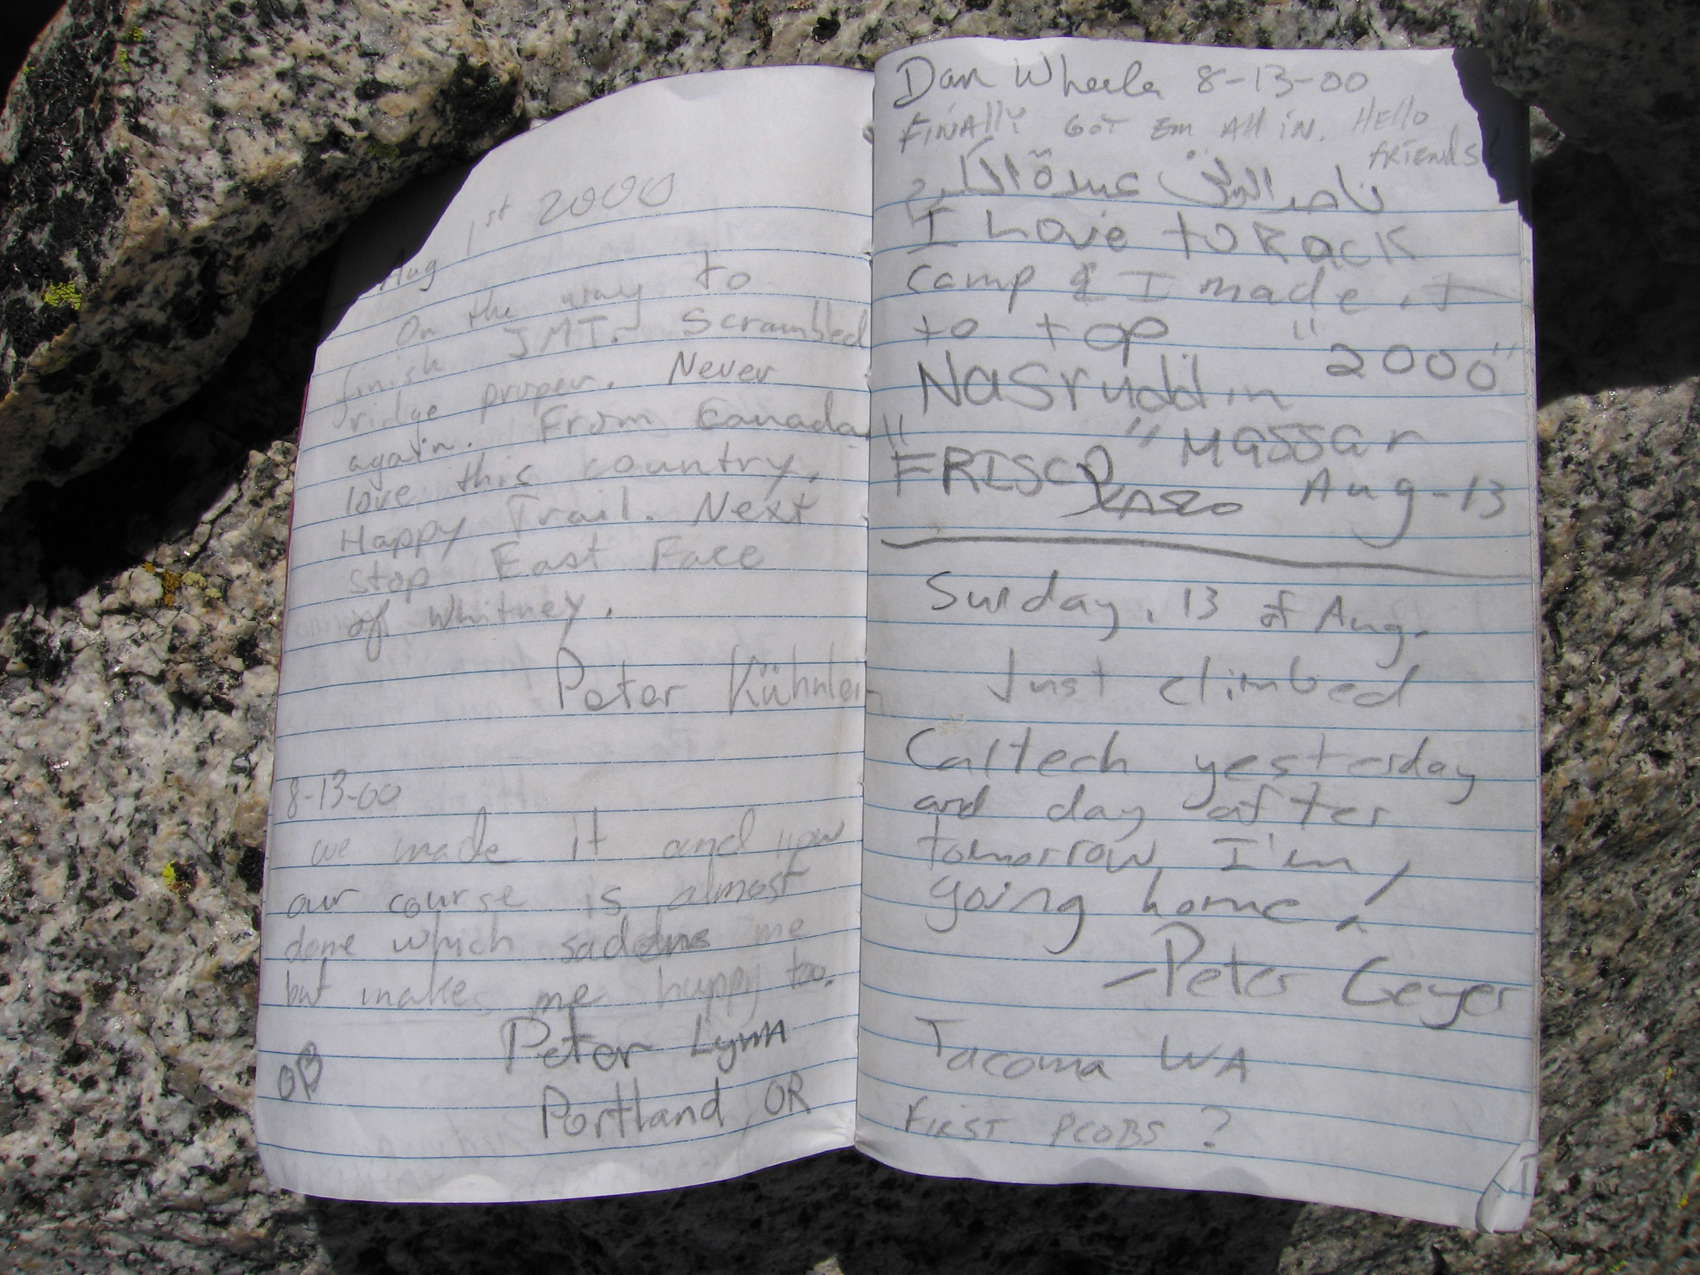 Aug 1st 2000
On the way to
finish JMT. Scrambled
ridge proper. Never
again. From Canada
love this country.
Happy Trail. Next
stop East Face
of Whitney.
Peter
8-13-00
we made it and now
our course is almost
done which sadens me
but makes me happy too.
Peter Lynn
OB
Portland, OR
Dan 8-13-00
FINAllY GOT Em All iN. HEllO
FRIENdS
I Love to Rack
camp & I made it
to top "2000"
Nasruddin
"FRISCO" Massar
Aug-13
Sunday, 13 of Aug.
Just climbed
Caltech yesterday
and day after
tomorrow I'm
going home!
-Peter Geyer
Tacoma WA
FIRST PCOBS?